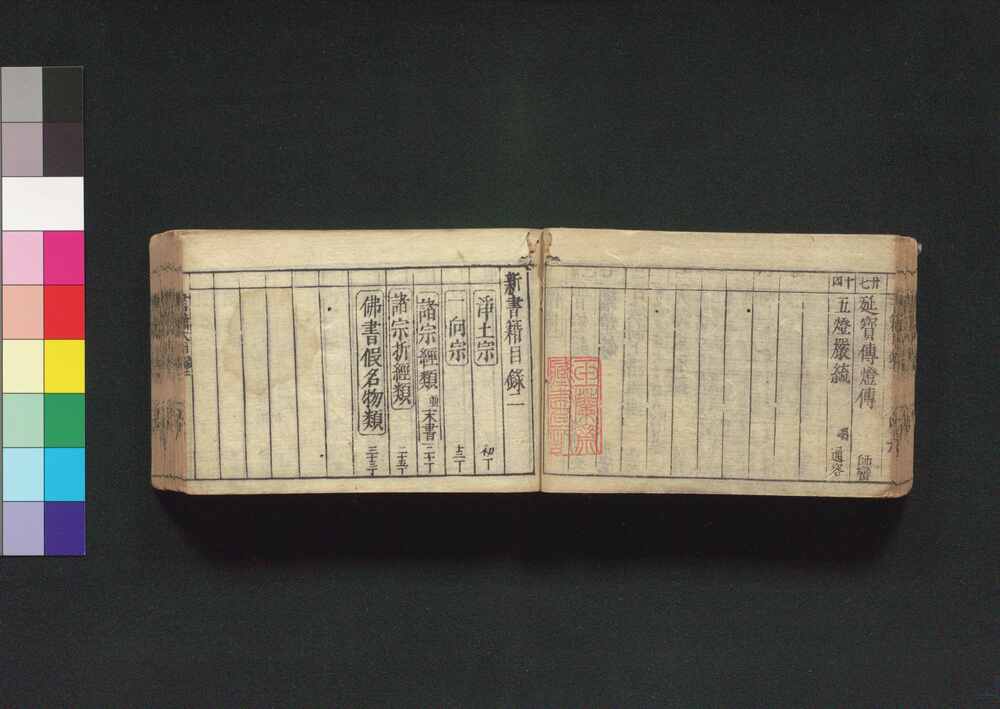 廿七 延寶傳燈傳 師蠻
十四 五燈嚴統 通容
新書籍目錄二
淨土宗 初丁
一向宗 十二丁
諸宗經類 並末書 二十丁
諸宗折經類 二十五丁
佛書假名物類 三十三丁